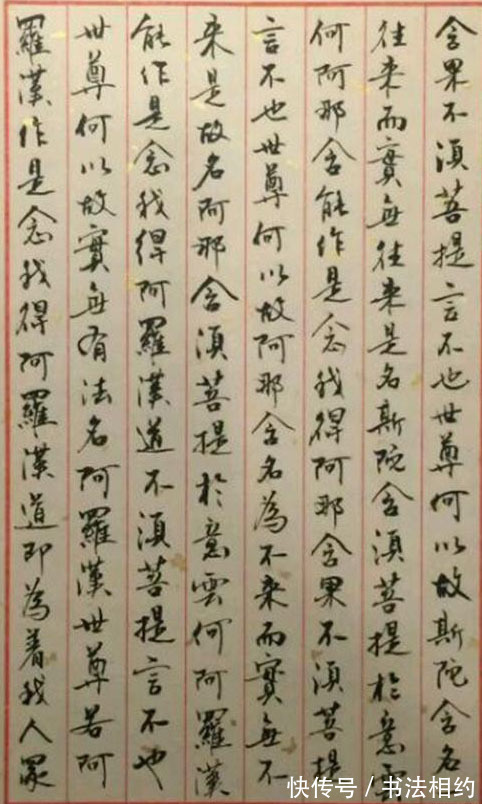 含果不須菩提言不也世尊何以故斯陀含名
往来而實無往来是名斯陀含須菩提於意雲
何阿那含能作是念我得阿那含果不須菩提
言不也世尊何以故阿那含名為不来而實無不
来是故名阿那含須菩提於意雲何阿羅漢
能作是念我得阿羅漢道不須菩提言不也
世尊何以故實無有法名阿羅漢世尊若阿
羅漢作是念我得阿羅漢道即為着我人眾
快传号 / 书法相约